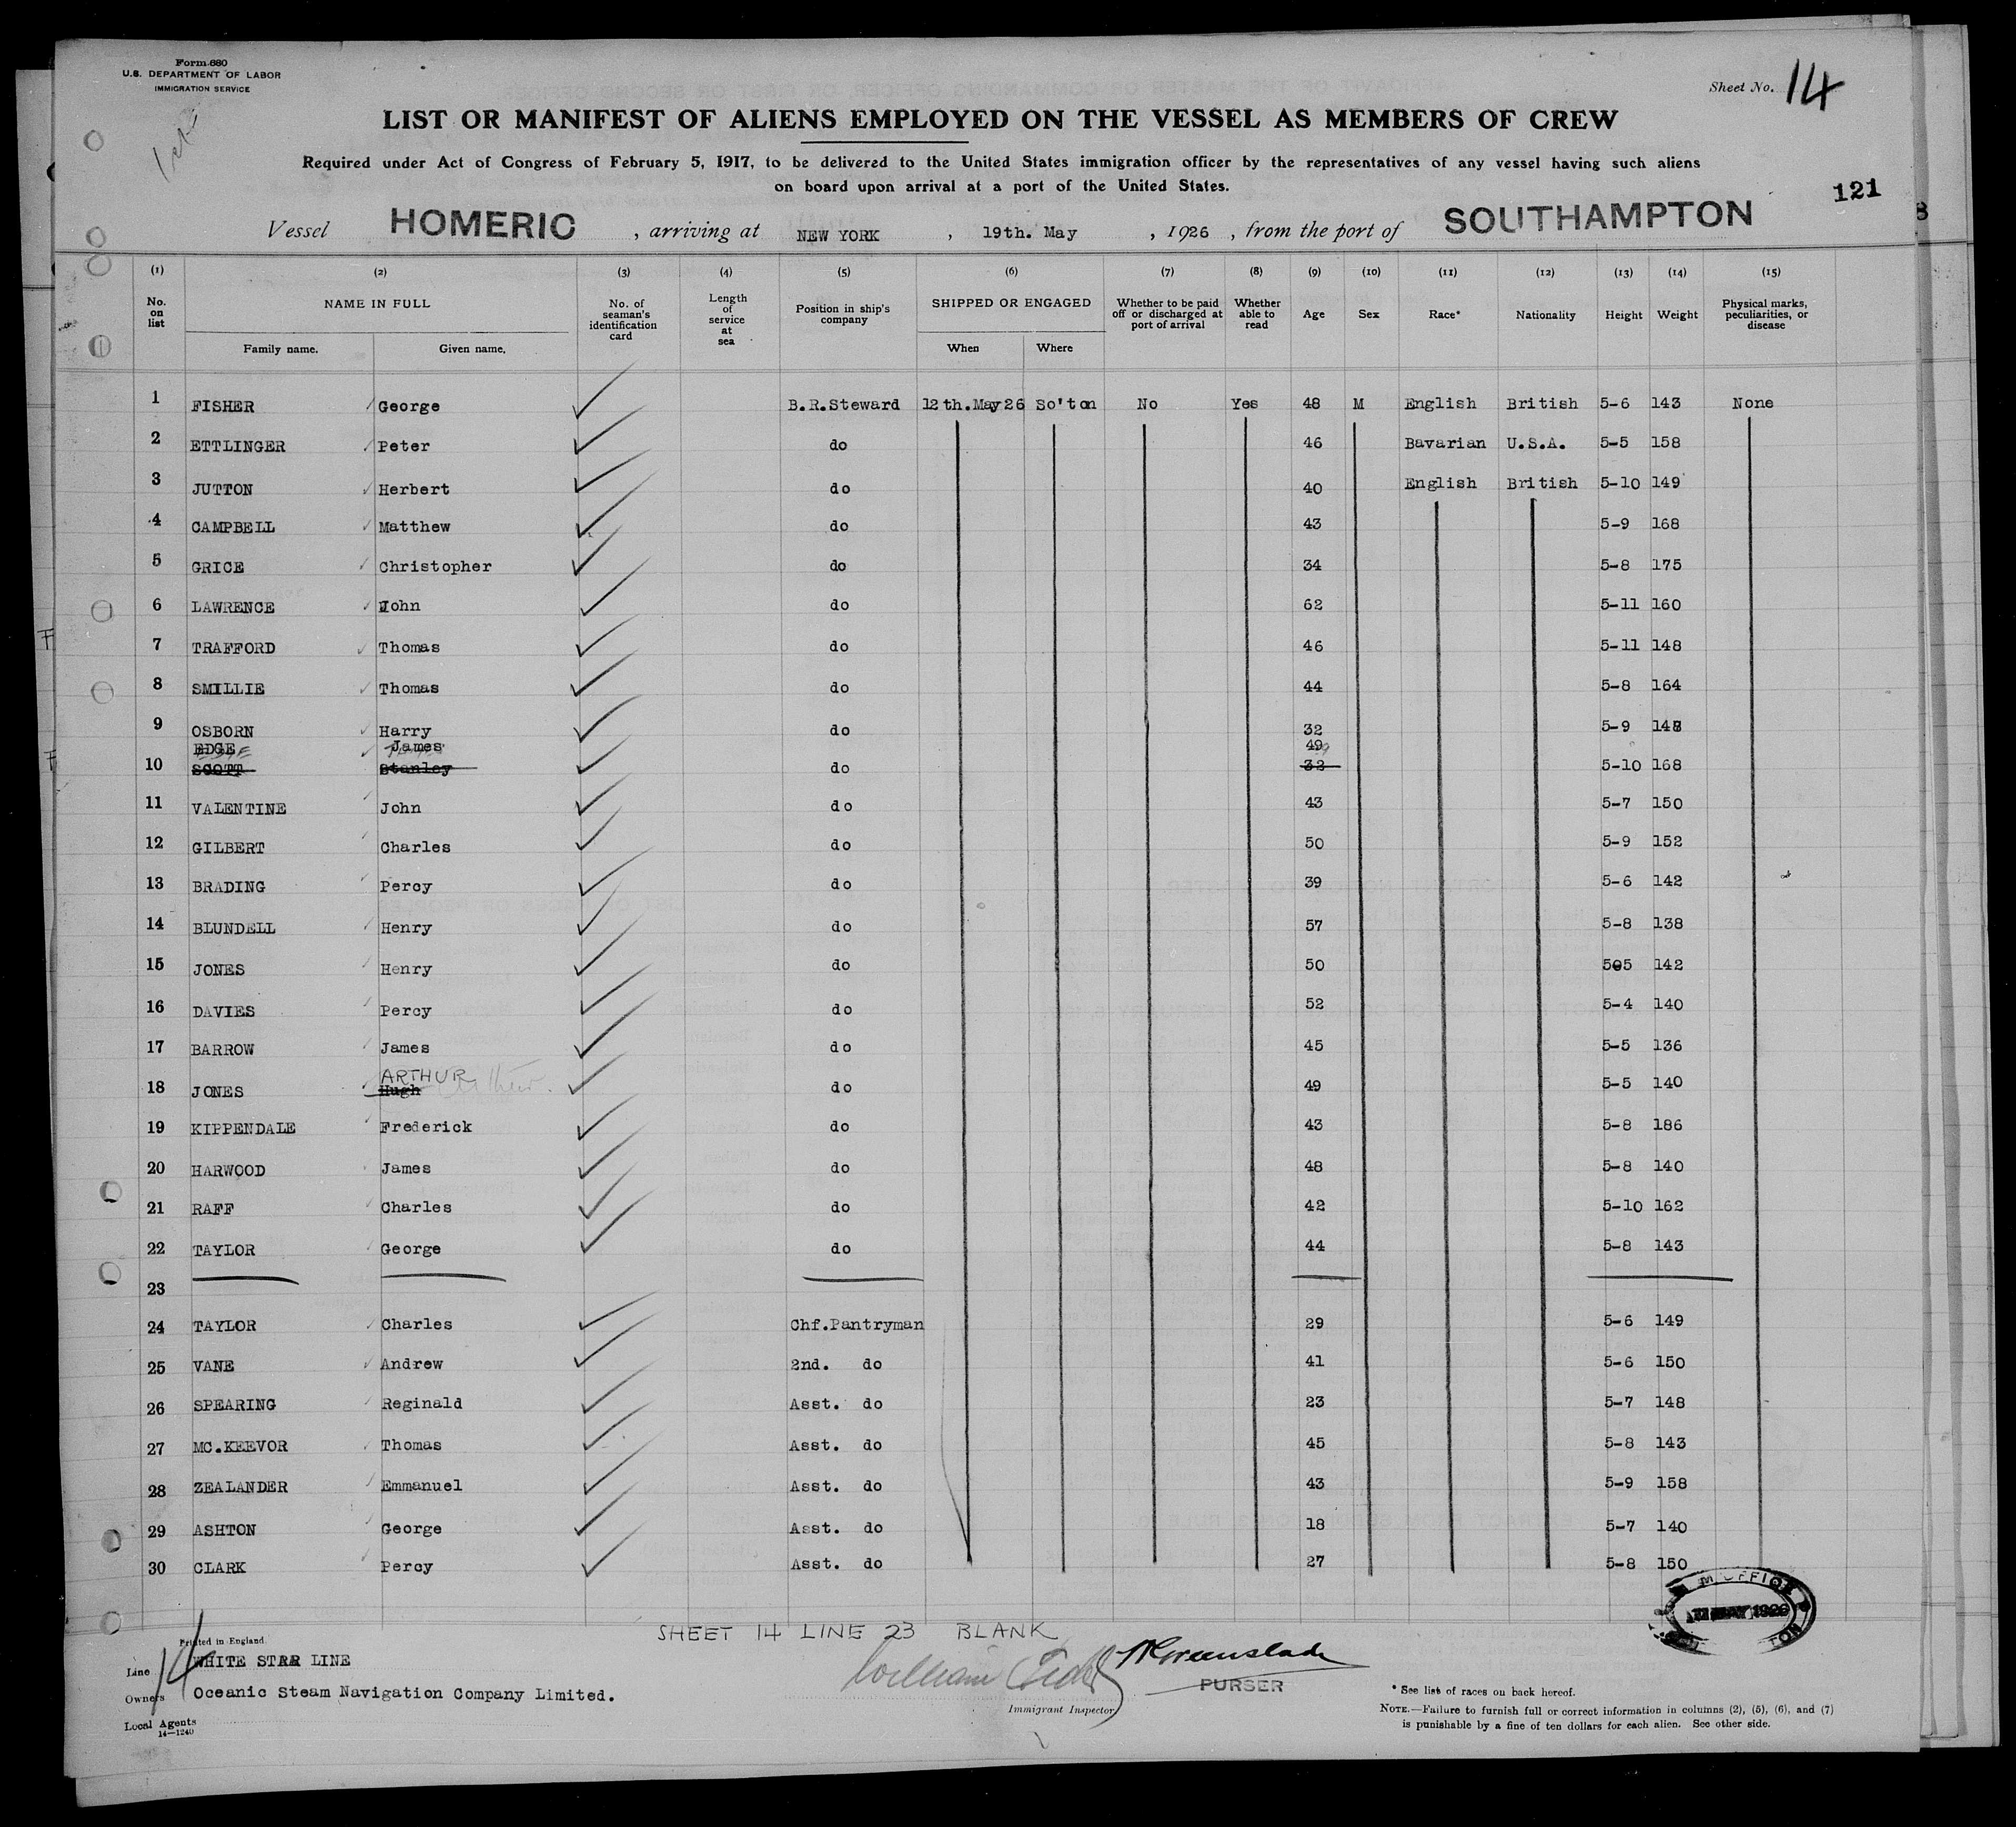 Form 680
U.S. DEPARTMENT OF LABOR
IMMIGRATION SERVICE
Sheet No. 14
LIST OR MANIFEST OF ALIENS EMPLOYED ON THE VESSEL AS MEMBERS OF CREW
Required under Act of Congress of February 5, 1917, to be delivered to the United States immigration officer by the representatives of any vessel having such aliens
on board upon arrival at a port of the United States.
121
Vessel HOMERIC, arriving at NEW YORK, 19th. May, 1926, from the port of SOUTHAMPTON
(1) (2) (3) (4) (5) (6) (7) (8) (9) (10) (11) (12) (13) (14) (15)
No. on list NAME IN FULL No. of seaman's identification card Length of service at sea Position in ship's company SHIPPED OR ENGAGED Whether to be paid off or discharged at port of arrival Whether able to read Age Sex Race* Nationality Height Weight Physical marks, peculiarities, or disease
Family name. Given name. When Where
1 FISHER George B.R.Steward 12th.May26 So'ton No Yes 48 M English British 5-6 143 None
2 ETTLINGER Peter do 46 Bavarian U.S.A. 5-5 158
3 JUTTON Herbert do 40 English British 5-10 149
4 CAMPBELL Matthew do 43 5-9 168
5 GRICE Christopher do 34 5-8 175
6 LAWRENCE John do 62 5-11 160
7 TRAFFORD Thomas do 46 5-11 148
8 SMILLIE Thomas do 44 5-8 164
9 OSBORN Harry do 32 5-9 148
EDGE James 49
10 SCOTT Stanley do 32 5-10 168
11 VALENTINE John do 43 5-7 150
12 GILBERT Charles do 50 5-9 152
13 BRADING Percy do 39 5-6 142
14 BLUNDELL Henry do 57 5-8 138
15 JONES Henry do 50 505 142
16 DAVIES Percy do 52 5-4 140
17 BARROW James do 45 5-5 136
ARTHUR
18 JONES Hugh Arthur. do 49 5-5 140
19 KIPPENDALE Frederick do 43 5-8 186
20 HARWOOD James do 48 5-8 140
21 RAFF Charles do 42 5-10 162
22 TAYLOR George do 44 5-8 143
23
24 TAYLOR Charles Chf.Pantryman 29 5-6 149
25 VANE Andrew 2nd. do 41 5-6 150
26 SPEARING Reginald Asst. do 23 5-7 148
27 MC.KEEVOR Thomas Asst. do 45 5-8 143
28 ZEALANDER Emmanuel Asst. do 43 5-9 158
29 ASHTON George Asst. do 18 5-7 140
30 CLARK Percy Asst. do 27 5-8 150
SHEET 14 LINE 23 BLANK
Printed in England.
14
Line WHITE STAR LINE
Owners Oceanic Steam Navigation Company Limited.
Local Agents
14—1240
William
Greenslade
PURSER
Immigrant Inspector
MAY 1926
* See list of races on back hereof.
NOTE.—Failure to furnish full or correct information in columns (2), (5), (6), and (7)
is punishable by a fine of ten dollars for each alien. See other side.